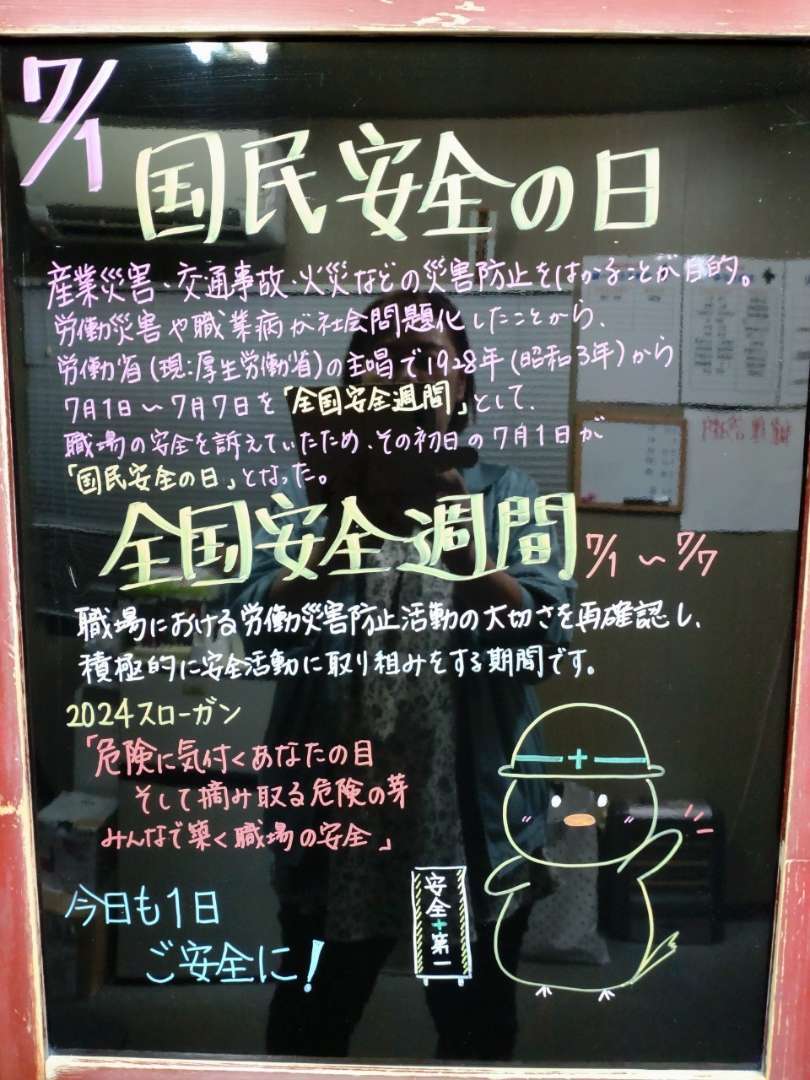 7/1
国民安全の日
産業災害、交通事故、火災などの災害防止をはかることが目的。
労働災害や職業病が社会問題化したことから、
労働省(現:厚生労働省)の主唱で1928年(昭和3年)から
7月1日〜7月7日を「全国安全週間」として、
職場の安全を訴えていたため、その初日の7月1日が
「国民安全の日」となった。
全国安全週間 7/1 〜 7/7
職場における労働災害防止活動の大切さを再確認し、
積極的に安全活動に取り組みをする期間です。
2024スローガン
「危険に気付くあなたの目
そして摘み取る危険の芽
みんなで築く職場の安全」
今日も1日
ご安全に!
安全+第一